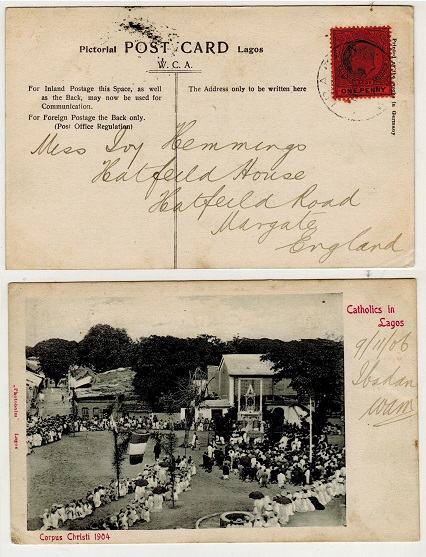 Pictorial POST CARD Lagos
W. C. A.
For Inland Postage this Space, as well
as the Back, may now be used for
Communication.
For Foreign Postage the Back only.
(Post Office Regulation)
The Address only to be written here
ONE PENNY
in Germany
Miss Ivy Hemmings
Hatfeild House
Hatfeild Road
Margate
England
Catholics in
Lagos
9/11/06
Ibadan
Lagos
Corpus Christi 1904